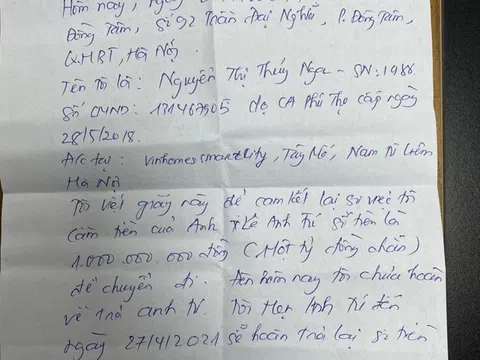 Hôm nay, ngày
Đồng Tâm, số 92 Trần Đại Nghĩa, P. Đồng Tâm,
Q.HBT, Hà Nội.
Tên tôi là: Nguyễn Thị Thúy Nga - SN: 1986
Số CMND: 131467905 do CA Phú Thọ cấp ngày
28/5/2018.
Đ/c tại: vinhomes smartcity, Tây Mỗ, Nam Từ Liêm
Hà Nội
Tôi viết giấy này để cam kết lại sự việc tôi
cầm tiền của Anh Lê Anh Tú số tiền là
1.000.000.000 đồng (Một tỷ đồng chẵn)
để chuyển đi. Đến hôm nay tôi chưa hoàn
về trả anh Tú. Tôi Hẹn Anh Tú đến
ngày 27/4/2021 sẽ hoàn trả lại số tiền